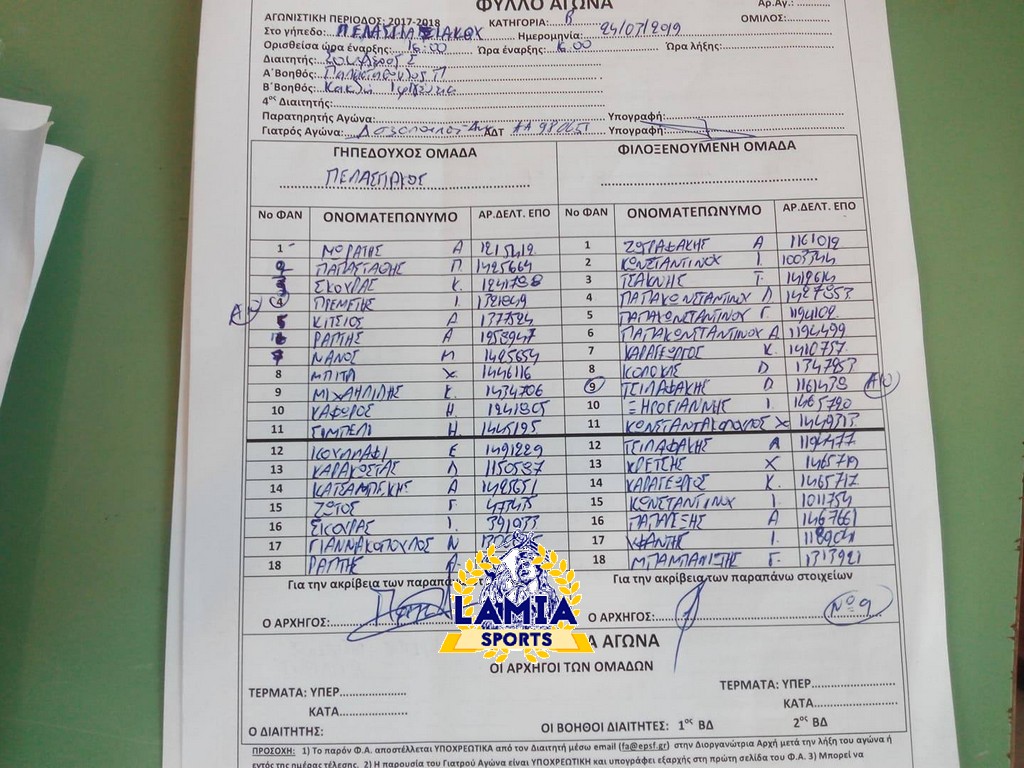 ΦΥΛΛΟ ΑΓΩΝΑ
ΑΓΩΝΙΣΤΙΚΗ ΠΕΡΙΟΔΟΣ: 2017-2018 ΚΑΤΗΓΟΡΙΑ: Β Αρ.Αγ.:
Στο γήπεδο: Ημερομηνία: 24/07/2019 ΟΜΙΛΟΣ:
Ορισθείσα ώρα έναρξης: 16:00 Ώρα έναρξης: 16.00 Ώρα λήξης:
Διαιτητής:
Α΄Βοηθός:
Β΄Βοηθός:
4ος Διαιτητής:
Παρατηρητής Αγώνα: Υπογραφή:
Γιατρός Αγώνα: ΑΔΤ Υπογραφή:
ΓΗΠΕΔΟΥΧΟΣ ΟΜΑΔΑ ΦΙΛΟΞΕΝΟΥΜΕΝΗ ΟΜΑΔΑ
ΠΕΛΑΣΓΙΑΚΟΣ
Νο ΦΑΝ ΟΝΟΜΑΤΕΠΩΝΥΜΟ ΑΡ.ΔΕΛΤ. ΕΠΟ Νο ΦΑΝ ΟΝΟΜΑΤΕΠΩΝΥΜΟ ΑΡ.ΔΕΛΤ. ΕΠΟ
1 ΜΩΡΑΤΗΣ Α 1215412 1 ΖΩΓΡΑΦΑΚΗΣ Α 1161012
2 ΠΑΠΑΣΤΑΘΗΣ Π 1425664 2 ΚΩΝΣΤΑΝΤΙΝΟΥ Ι. 1003344
3 ΣΚΟΥΡΑΣ Κ. 1241798 3 ΤΣΑΚΝΗΣ Τ. 1412614
4 ΠΡΕΜΕΤΗΣ Ι. 4 ΠΑΠΑΚΩΝΣΤΑΝΤΙΝΟΥ
5 ΚΙΤΣΙΟΣ Α 1377524 5 ΠΑΠΑΚΩΝΣΤΑΝΤΙΝΟΥ Γ. 1194102
6 ΡΑΠΤΗΣ Α 1253947 6 ΠΑΠΑΚΩΝΣΤΑΝΤΙΝΟΥ Α 1194499
7 ΝΑΝΟΣ 1425654 7 ΚΑΡΑΓΕΩΡΓΟΣ Κ. 1410757
8 ΜΠΙΤΑ Χ. 1446116 8 ΚΟΛΟΚΑΣ 1347953
9 ΜΙΧΑΗΛΙΔΗΣ Κ. 1434706 9 ΤΣΙΛΑΦΑΚΗΣ 1161438
10 ΚΑΦΩΡΟΣ Η. 1241805 10 ΞΗΡΟΓΙΑΝΝΗΣ Ι. 1465720
11 Η. 1445195 11 ΚΩΝΣΤΑΝΤΑΚΟΠΟΥΛΟΣ Χ
12 Ε 1491229 12 ΤΣΙΛΑΦΑΚΗΣ Α 1194477
13 ΚΑΡΑΚΩΣΤΑΣ Λ 1150537 13 ΚΡΕΤΣΗΣ Χ 1465719
14 ΚΑΤΣΑΜΠΕΚΗΣ Α 1425651 14 ΚΑΡΑΓΕΩΡΓΟΣ Κ. 1465717
15 ΖΩΤΟΣ Γ. 15 ΚΩΝΣΤΑΝΤΙΝΟΥ Ι. 1011754
16 ΣΚΟΥΡΑΣ Ι. 391933 16 ΠΑΠΑΛΕΞΗΣ Α 1467661
17 ΓΙΑΝΝΑΚΟΠΟΥΛΟΣ Ν 17 ΥΦΑΝΤΗΣ Ι.
18 ΡΑΠΤΗΣ Α. 18 ΜΠΑΜΠΑΛΙΤΗΣ Γ. 1313921
Για την ακρίβεια των παραπάνω Για την ακρίβεια των παραπάνω στοιχείων
Ο ΑΡΧΗΓΟΣ: Ο ΑΡΧΗΓΟΣ: Νο 9
LAMIA
SPORTS
Α ΑΓΩΝΑ
ΟΙ ΑΡΧΗΓΟΙ ΤΩΝ ΟΜΑΔΩΝ
ΤΕΡΜΑΤΑ: ΥΠΕΡ ΤΕΡΜΑΤΑ: ΥΠΕΡ
ΚΑΤΑ ΚΑΤΑ
Ο ΔΙΑΙΤΗΤΗΣ: ΟΙ ΒΟΗΘΟΙ ΔΙΑΙΤΗΤΕΣ: 1ος ΒΔ 2ος ΒΔ
ΠΡΟΣΟΧΗ: 1) Το παρόν Φ.Α. αποστέλλεται ΥΠΟΧΡΕΩΤΙΚΑ από τον Διαιτητή μέσω email (fa@epsf.gr) στην Διοργανώτρια Αρχή μετά την λήξη του αγώνα ή
εντός της ημέρας τέλεσης. 2) Η παρουσία του Γιατρού Αγώνα είναι ΥΠΟΧΡΕΩΤΙΚΗ και υπογράφει εξαρχής στη πρώτη σελίδα του Φ.Α. 3) Μπορεί να